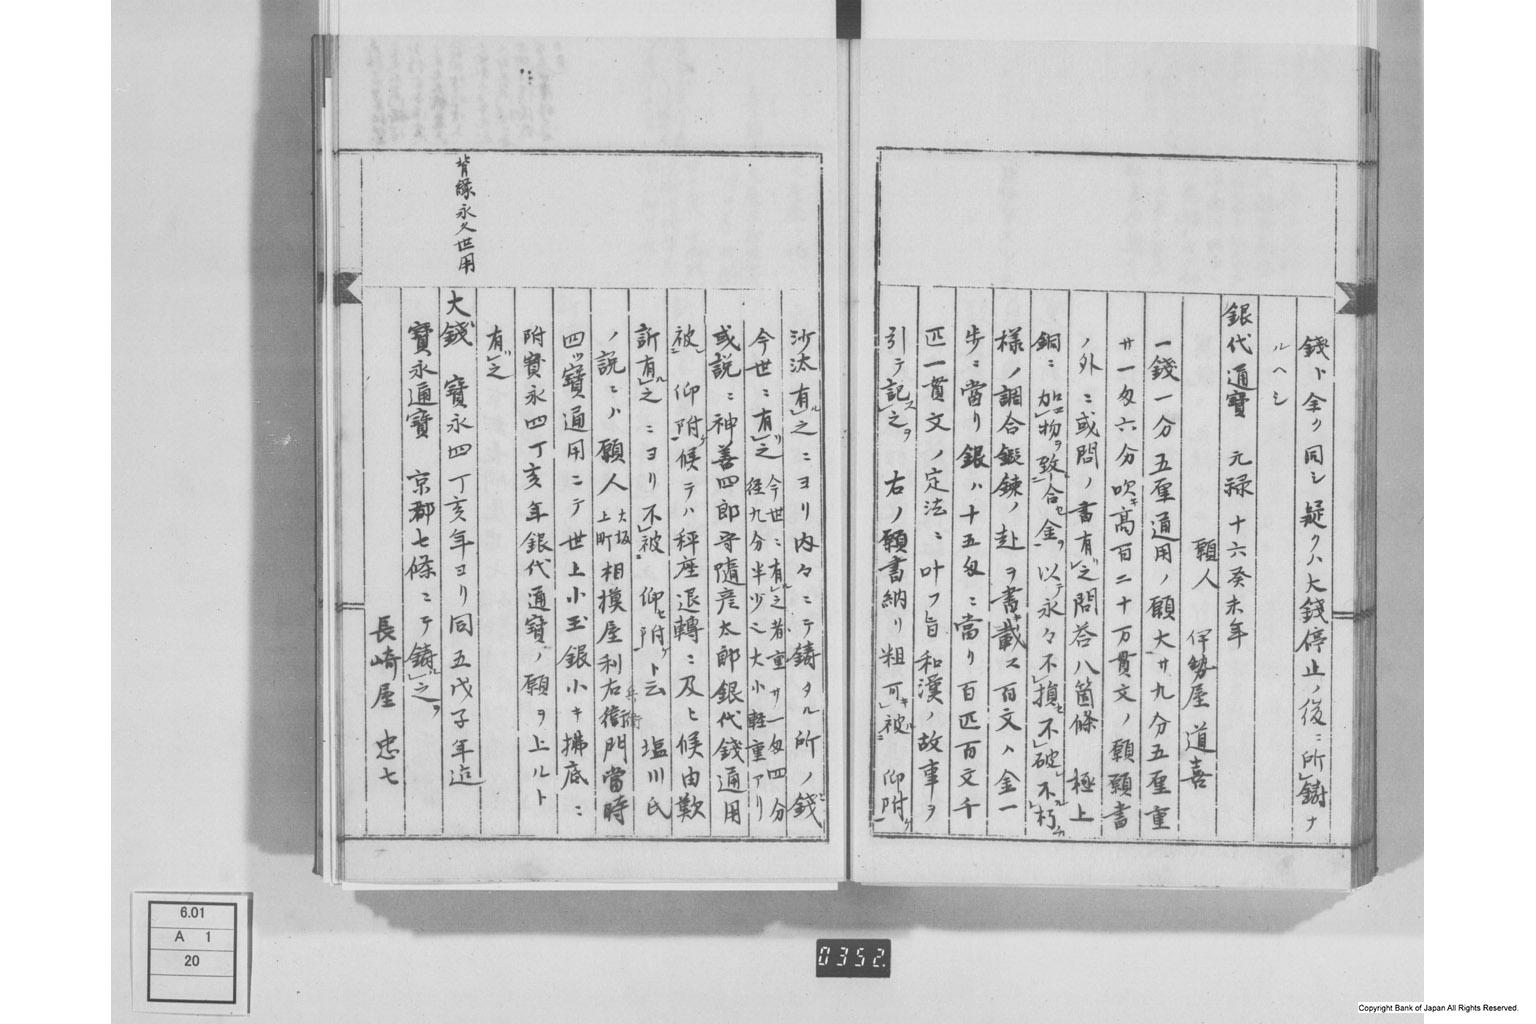 錢ト全ク同シ疑クハ大錢停止ノ後ニ所鑄ナ
ルヘシ
銀代通寶 元禄十六癸未年
願人 伊勢屋道喜
一錢一分五厘通用ノ願大サ九分五厘重
サ一匁六分吹キ高百二十万貫文ノ願願書
ノ外ニ或問ノ書有之問荅八箇條 極上
銅ニ加物ヲ致合金ヲ以テ永々不損不破不朽
様ノ調合鍛錬ノ赴ヲ書載ス百文ハ金一
歩ニ當リ銀ハ十五匁ニ當リ百匹百文千
匹一貫文ノ定法ニ叶フ旨和漢ノ故事ヲ
引テ記之 右ノ願書納リ粗可被 仰附
沙汰有之ニヨリ内々ニテ鑄タル所ノ錢
今世ニ有之 今世ニ有之者重サ一匁四分
径九分半少ニ大小軽重アリ
或説ニ神善四郎守隨彦太郎銀代錢通用
被 仰附候テハ秤座退轉ニ及ヒ候由歎
訴有之ニヨリ不被 仰附ト云 塩川氏
ノ説ニハ願人 大坂上町 相摸屋利右衛門當時
兵衛
四ツ寶通用ニテ世上小玉銀小キ拂底ニ
附寳永四丁亥年銀代通寶ノ願ヲ上ルト
有之
背縁永久世用
大錢 寶永四丁亥年ヨリ同五戊子年迄
寶永通寶 京都七條ニテ鑄之
長崎屋 忠七
6.01
A 1
20
0352
Copyright Bank of Japan All Rights Reserved.